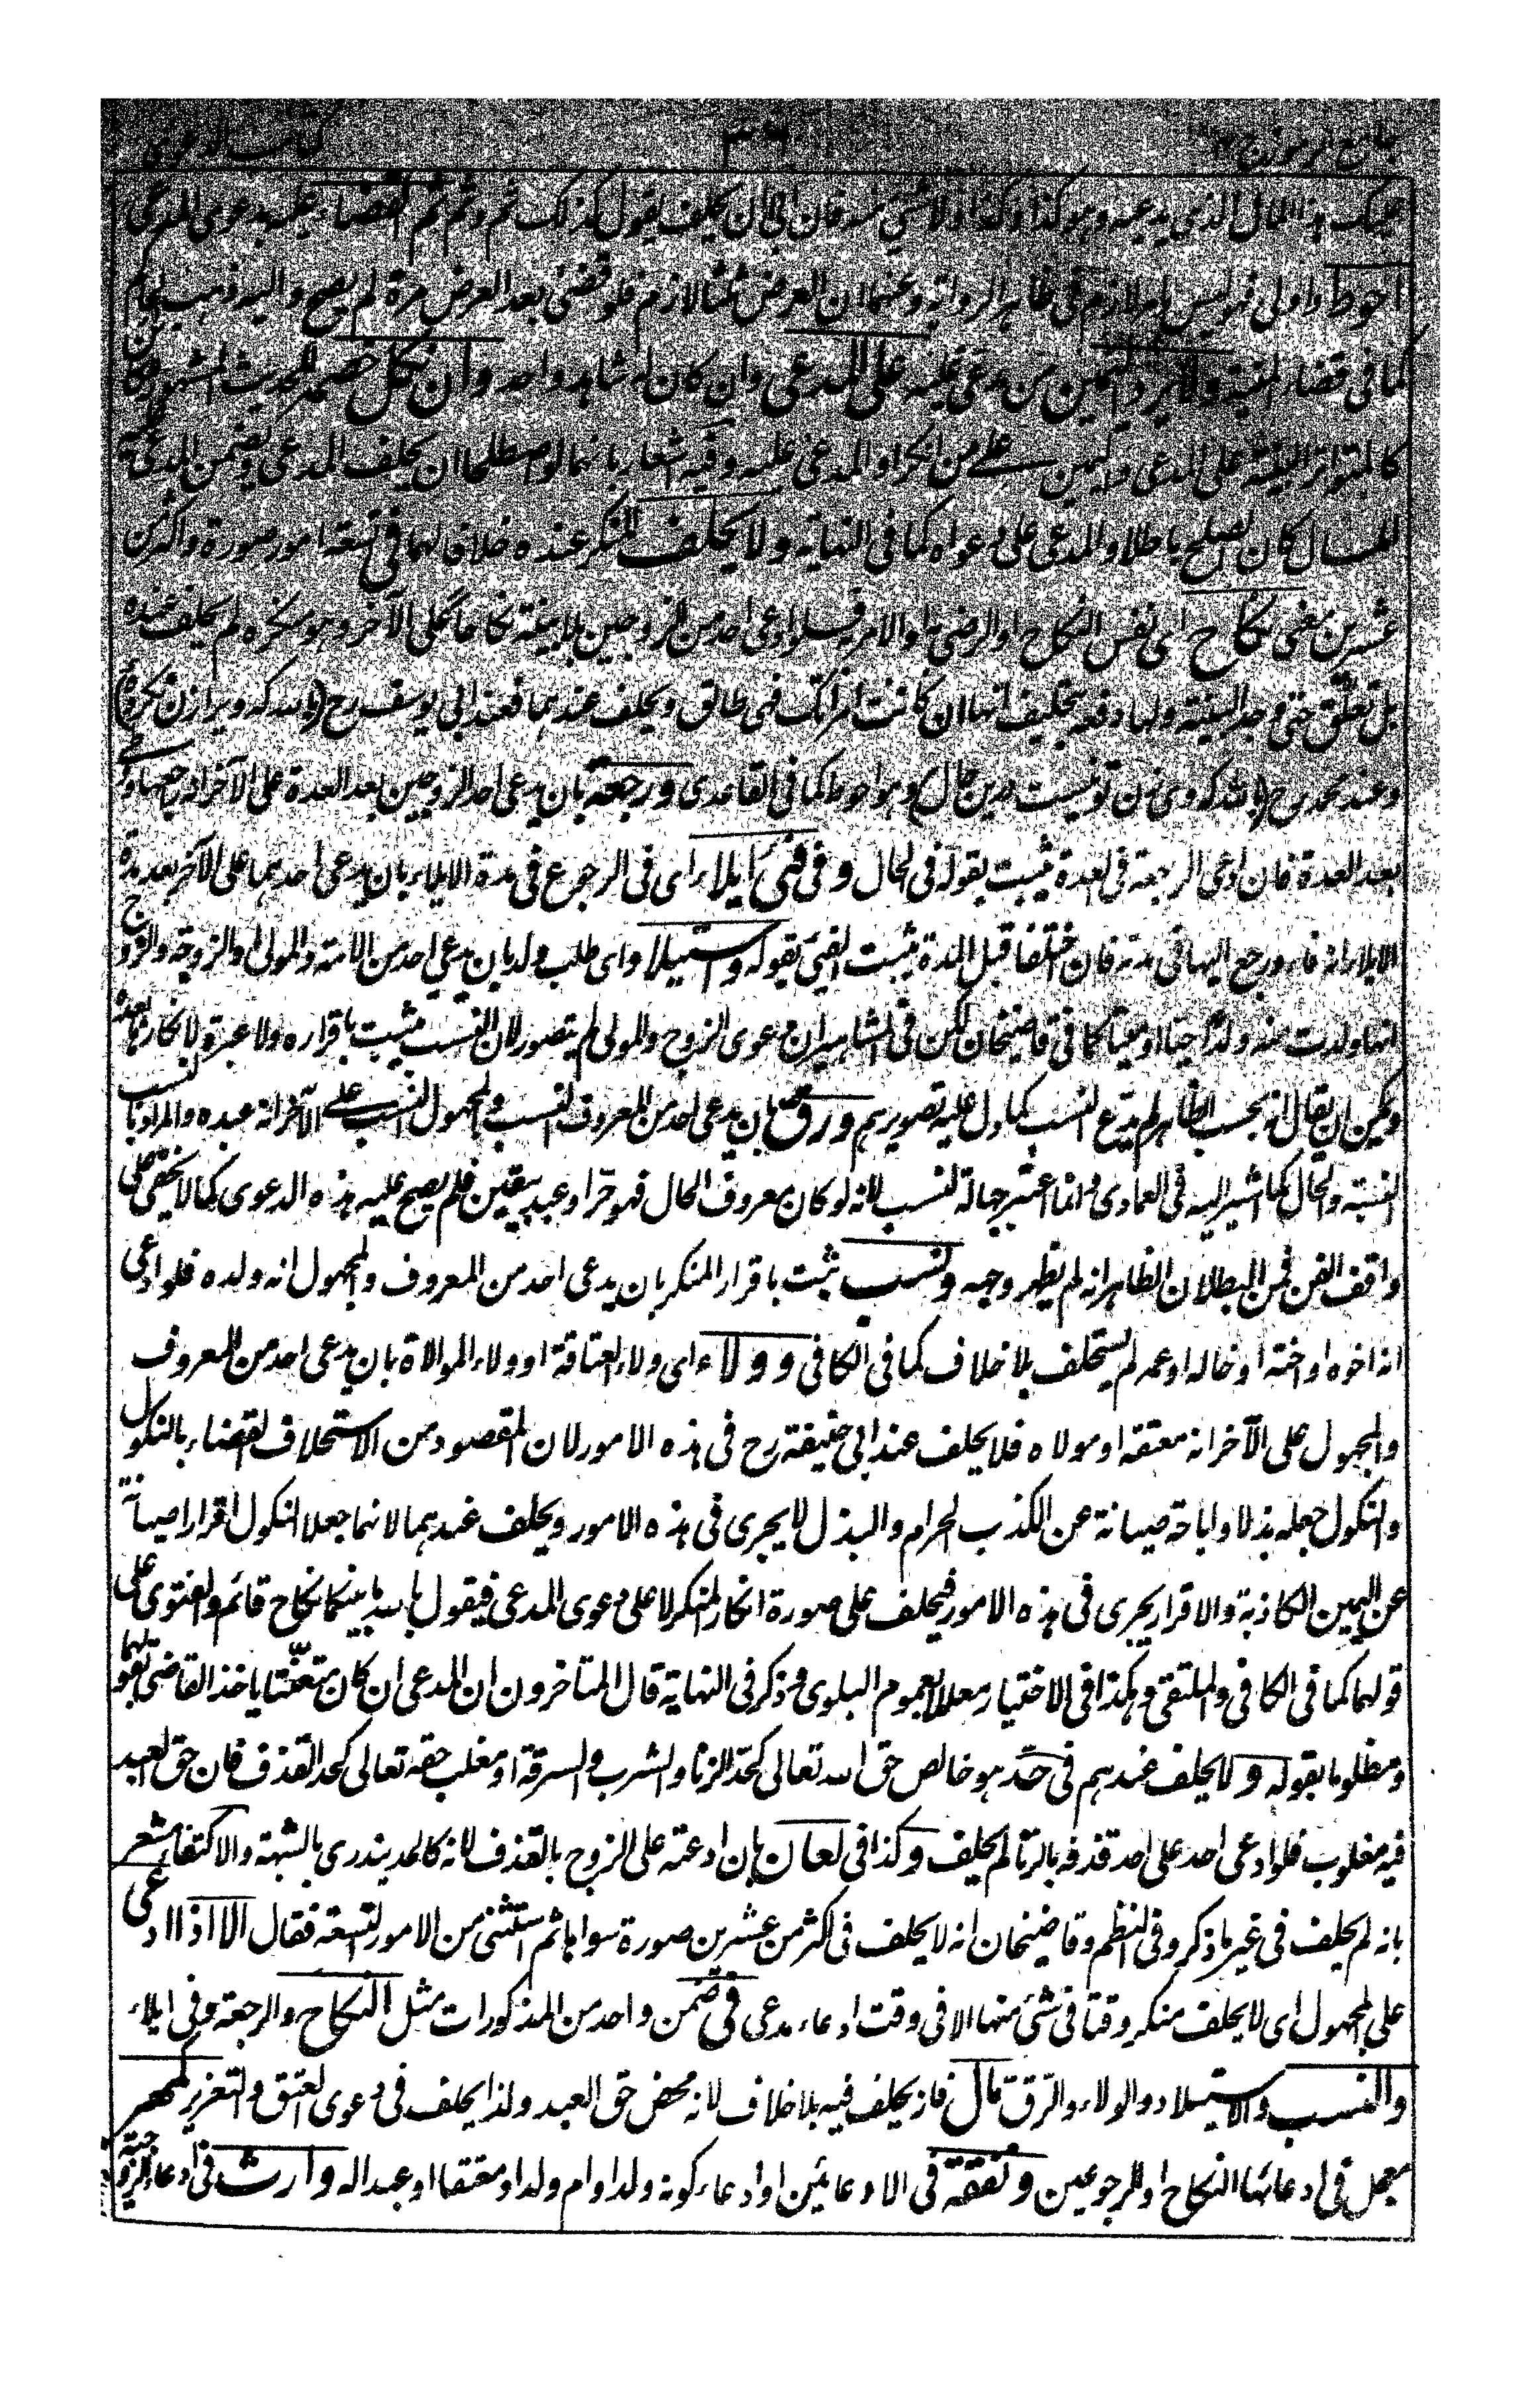 جامع الرموز ج ٣٠٦ كتاب الدعوى
عليك هذا المال الذى يدعيه وهو كذا وكذا ولا شئ منه فان ابى ان يحلف يقول كذلك ثم وثم ثم القضاء عليه بدعوى المدعى
احوط واولى فهو ليس بامر لازم فى ظاهر الرواية وعنهما ان العرض ثلثا لازم فلو قضى بعد العرض مرة لم يصح واليه ذهب
كما فى قضاء المنية ولا يرد اليمين من مدعى عليه على المدعى وان كان له شاهد واحد وان نكل خصمه للحديث المشهور
كالمتواتر البينة على المدعى واليمين على من انكر او المدعى عليه وفيه اشعار بانهما لو اصطلحا ان يحلف المدعى ويضمن المدعى عليه
المال كان الصلح باطلا والمدعى على دعواه كما فى النهاية ولا يحلف المنكر عنده خلافا لهما فى تسعة امور صورة واكثر من
عشرين معنى نكاح اى نفس النكاح او الرضى به او الامر به فلو ادعى احد من الزوجين بلا بينة نكاحا على الآخر وهو منكره لم يحلف عنده
بل تعلق حتى وجد البينة ولها دفعه بتحليف انها ان كانت امراتك فهى طالق ويحلف عندهما فعند ابى يوسف رح (بالله كه ويرا زن نكرده)
وعند محمد رح (بالله كه وى زن تو نيست درين حال) وهو احوط كما فى القاعدى ورجعة بان يدعى احد الزوجين بعد العدة على الآخر انه راجعها
بعد العدة فان ادعى الرجعة فى العدة يثبت بقوله فى الحال وفى فئ ايلاء اى فى الرجوع فى مدة الايلاء بان يدعى احدهما على الآخر بعد مدة
الايلاء انه فاء ورجع اليها فى مدته فان اختلفا قبل المدة يثبت الفئ بقوله واستيلاد اى طلب ولد بان يدعى احد من الامة والمولى والزوجة والزوج
انها ولدت منه ولدا حيا او ميتا كما فى قاضيخان لكن فى المشاهير ان دعوى الزوج والمولى لم يتصور لان النسب يثبت باقراره ولا عبرة لانكارها بعده
ويمكن ان يقال انه بحسب الظاهر لم يدع النسب كما دل عليه تصويرهم ورق بان يدعى احد من المعروف النسب والمجهول النسب على الآخر انه عبده والمراد بالنسب
النسبة والحال كما اشير اليه فى العمادى وانما اعتبر جهالة النسب لانه لو كان معروف الحال فهو حر او عبد بيقين فلم يصح عليه هذه الدعوى كما لا يخفى على
واقف الفن فمن البطلان الظاهر انه لم يظهر وجهه ونسب ثبت باقرار المنكر بان يدعى احد من المعروف والمجهول انه ولده فلو ادعى
انه اخوه او اخته او خاله او عمه لم يستحلف بلا خلاف كما فى الكافى وولاء اى ولاء العتاقة او ولاء الموالاة بان يدعى احد من المعروف
والمجهول على الآخر انه معتقه او مولاه فلا يحلف عند ابى حنيفة رح فى هذه الامور لان المقصود من الاستحلاف القضاء بالنكول
والنكول جعله بذلا واباحة صيانة عن الكذب الحرام والبذل لا يجرى فى هذه الامور ويحلف عندهما لانهما جعلا النكول اقرارا صيانة
عن اليمين الكاذبة والاقرار يجرى فى هذه الامور فيحلف على صورة انكار المنكر لا على دعوى المدعى فيقول بالله ما بينكما نكاح قائم والفتوى على
قولهما كما فى الكافى والملتقى وهكذا فى الاختيار معللا لعموم البلوى وذكر فى النهاية قال المتاخرون ان المدعى ان كان متعنتا ياخذ القاضى بقولهما
ومظلوما بقوله ولا يحلف عندهم فى حد هو خالص حق الله تعالى كحد الزنا والشرب والسرقة او مغلب حقه تعالى كحد القذف فان حق العبد
فيه مغلوب فلو ادعى احد على احد قذفه بالزنا لم يحلف وكذا فى لعان بان ادعته على الزوج بالقذف لانه كالحد يندرى بالشبهة والاكتفاء مشعر
بانه لم يحلف فى غير ما ذكر وفى النظم وقاضيخان انه لا يحلف فى اكثر من عشرين صورة سواها ثم استثنى من الامور التسعة فقال الا اذا ادعى
على المجهول اى لا يحلف منكر وقتا فى شئ منها الا فى وقت ادعاء مدعى فى ضمن واحد من المذكورات مثل النكاح والرجعة وفى ايلاء
والنسب والاستيلاد والولاء والرق مال فانه يحلف فيه بلا خلاف لانه محض حق العبد ولذا يحلف فى دعوى العتق والتعزير كمهر
معجل فى ادعائها النكاح او الرجوعين ونفقة فى الادعائين او ادعاء كونه ولدا او ام ولد او معتقا او عبدا له وارث فى ادعاء الزوجية